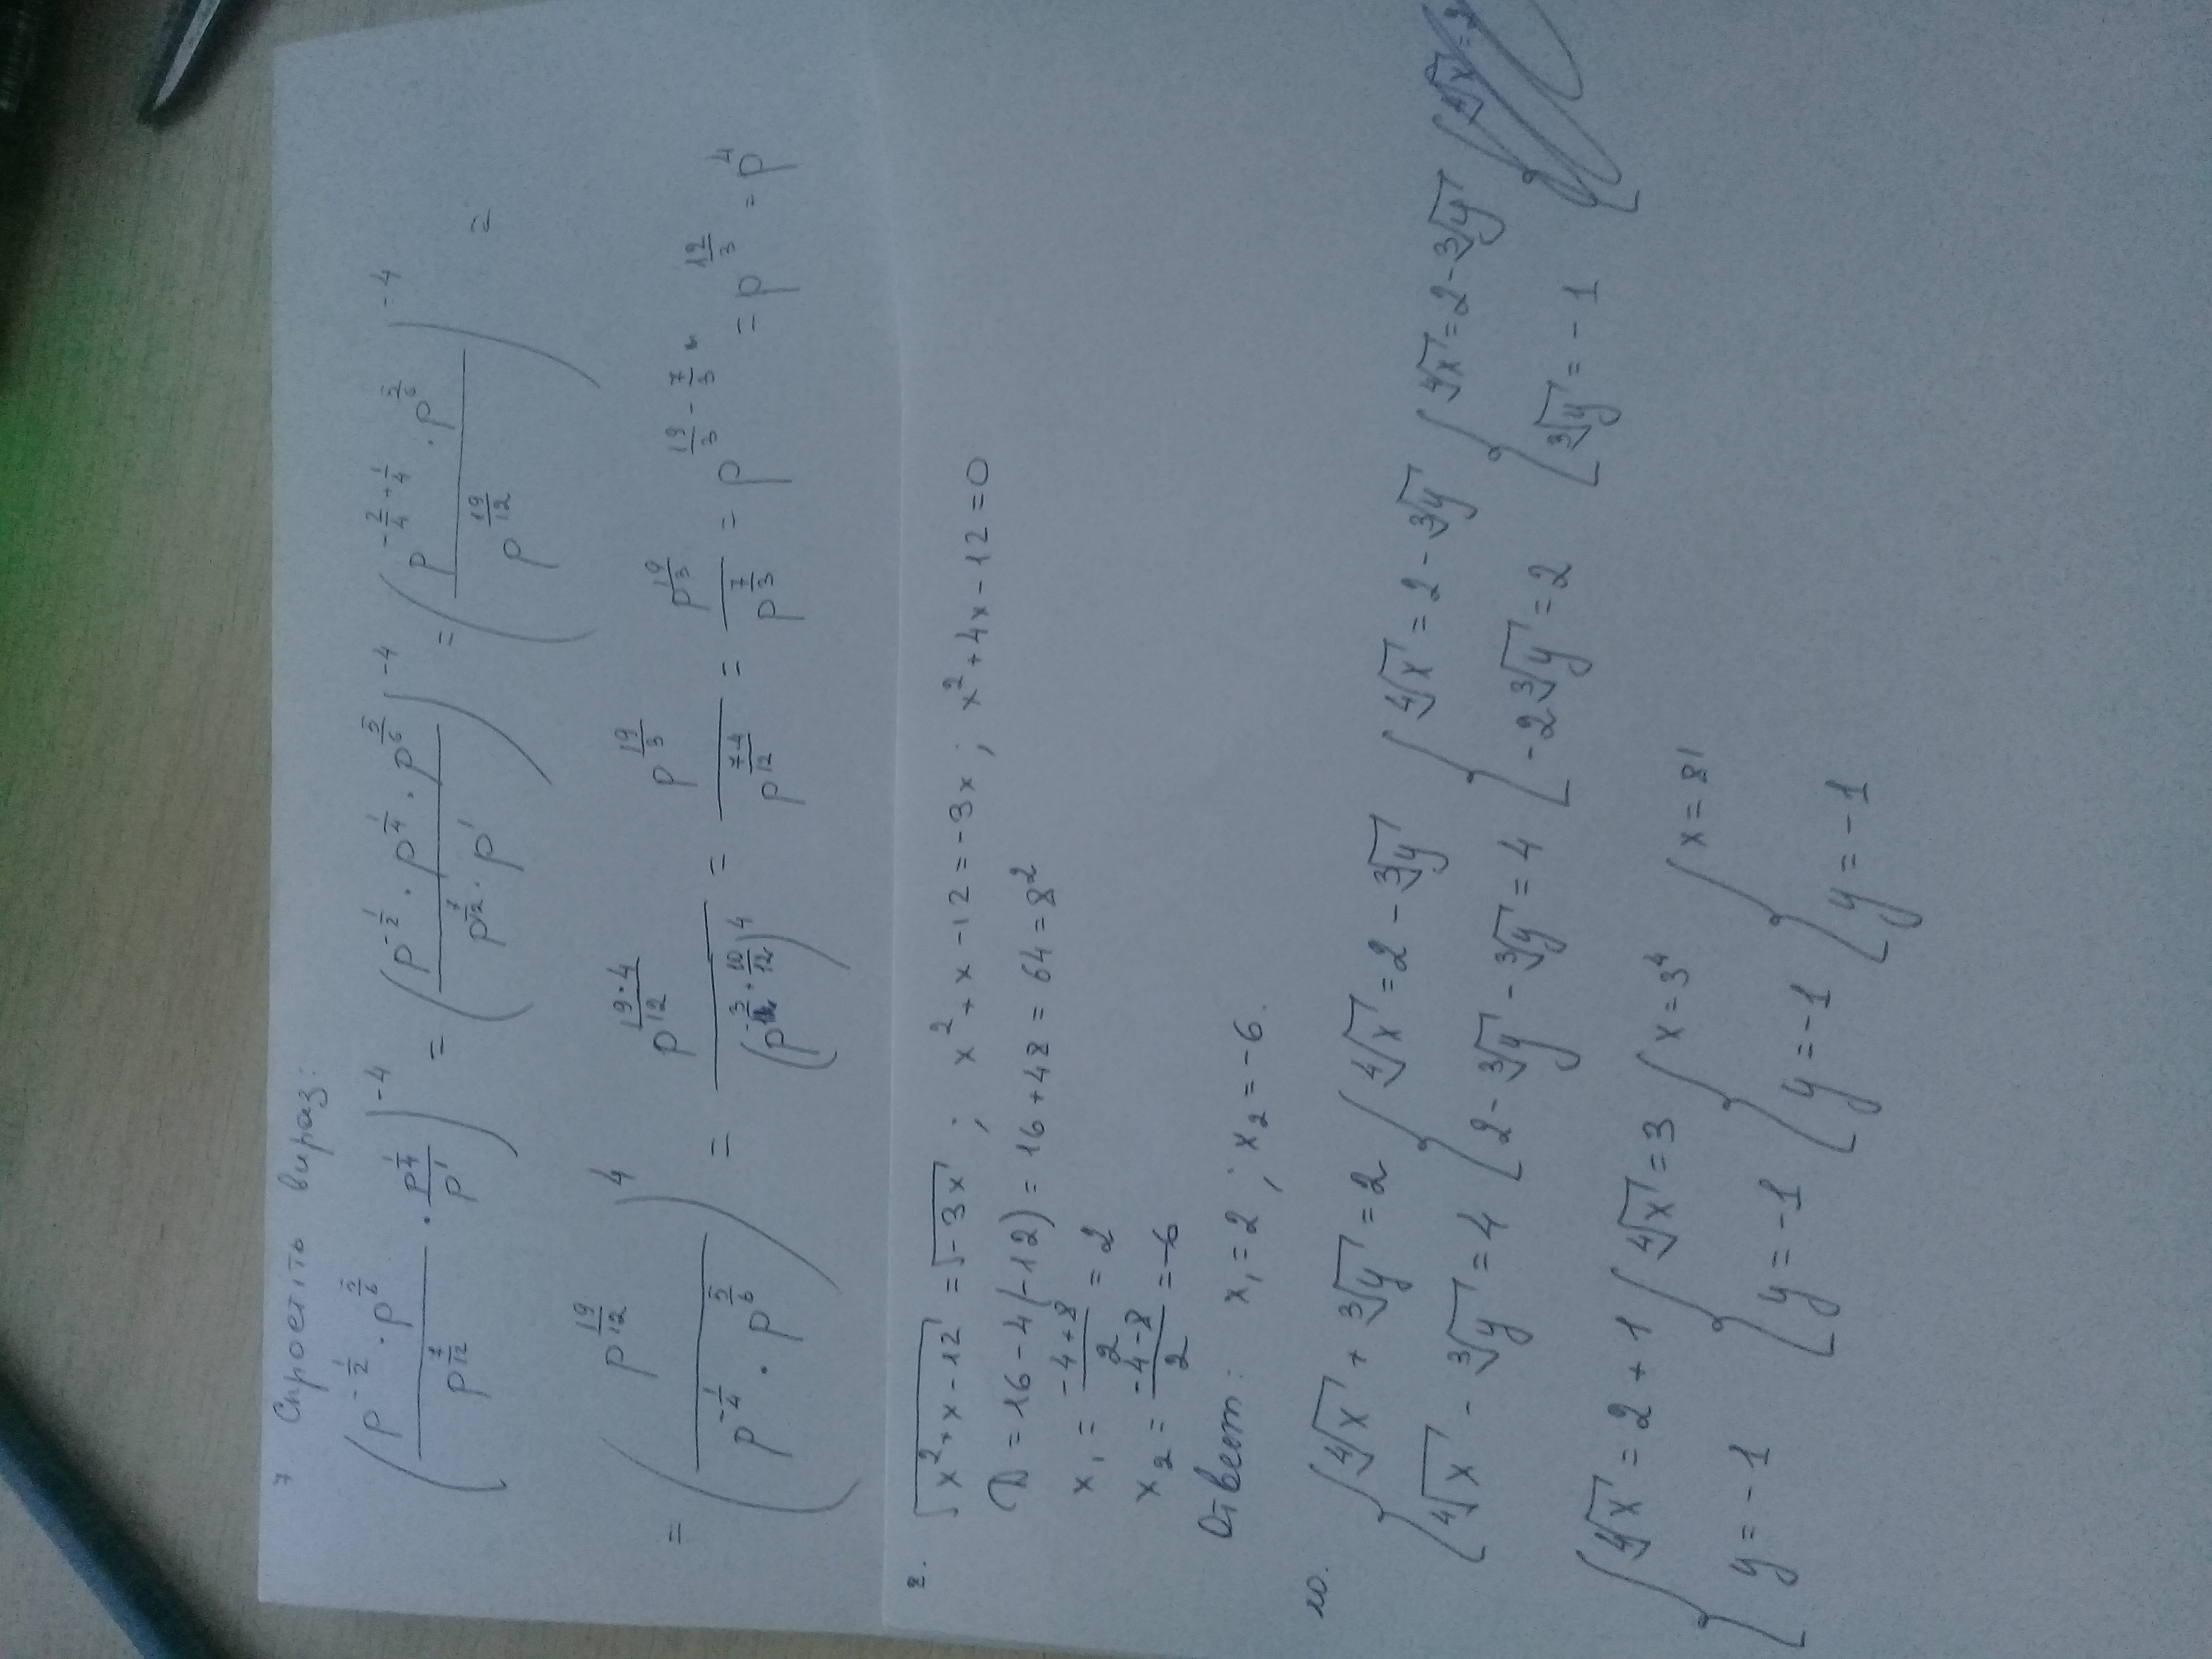 7 Спростіть вираз:
(p^(-1/2) · p^(5/6) / p^(7/12) · p^(1/4) / p^1)^(-4) = (p^(-1/2) · p^(1/4) · p^(5/6) / p^(7/12) · p^1)^(-4) = (p^(-2/4+1/4) · p^(5/6) / p^(19/12))^(-4) =
= (p^(19/12) / p^(-1/4) · p^(5/6))^4 = p^(19·4/12) / (p^(-3/12+10/12))^4 = p^(19/3) / p^(7·4/12) = p^(19/3) / p^(7/3) = p^(19/3-7/3) = p^(12/3) = p^4
√(x²+x-12) = √(-3x) ; x²+x-12=-3x ; x²+4x-12=0
D=16-4(-12)=16+48=64=8²
x₁ = (-4+8)/2 = 2
x₂ = (-4-8)/2 = -6
Ответ: x₁=2 ; x₂=-6.
10. { ⁴√x + ³√y = 2 { ⁴√x = 2 - ³√y { ⁴√x = 2 - ³√y { ⁴√x = 2 - ³√y
{ ⁴√x - ³√y = 4 { 2 - ³√y - ³√y = 4 { -2³√y = 2 { ³√y = -1
{ ⁴√x = 2+1 { ⁴√x = 3 { x = 3⁴ { x = 81
{ y = -1 { y = -1 { y = -1 { y = -1